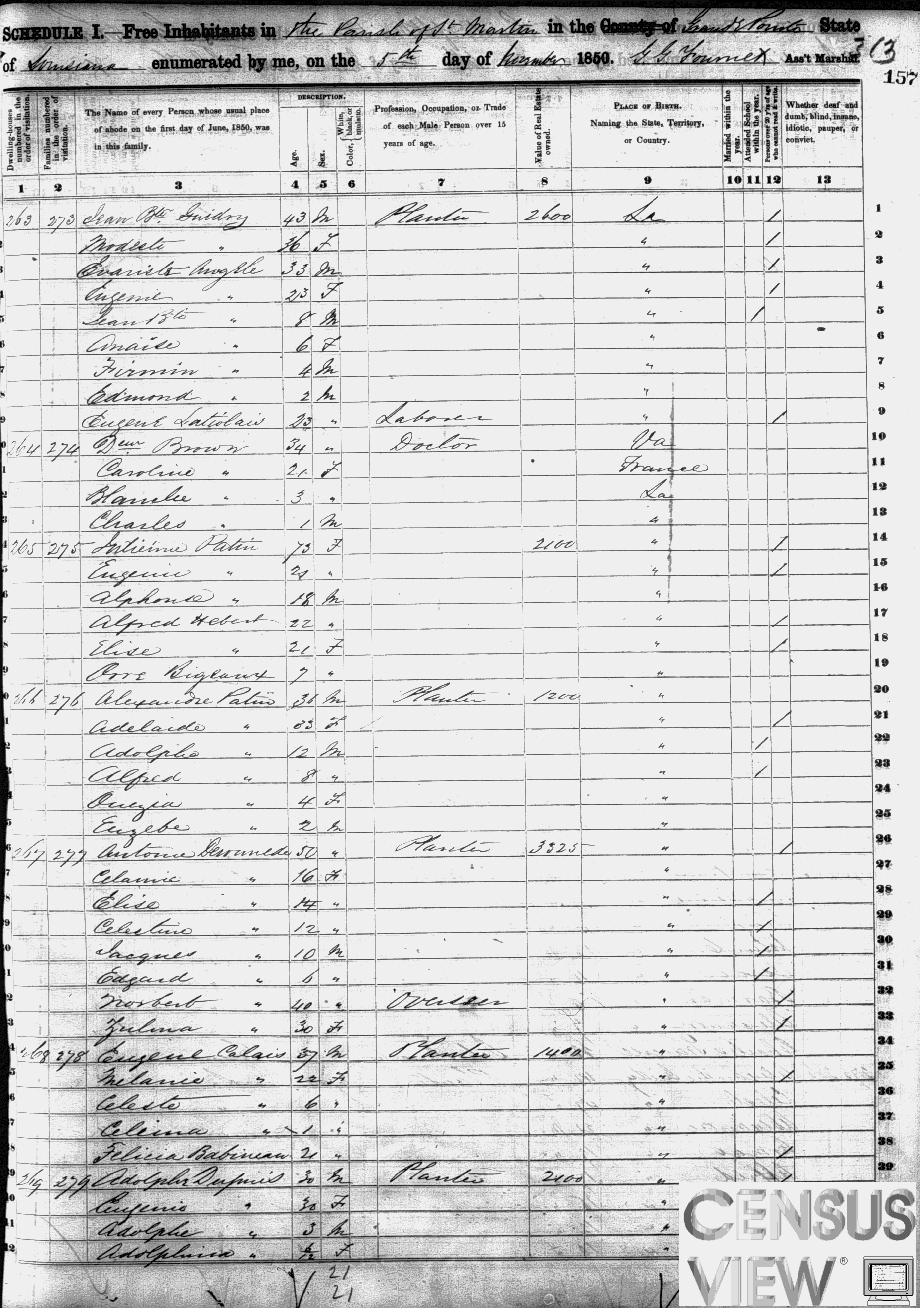 SCHEDULE I.—Free Inhabitants in the Parish of St Martin in the County of Grand Pointe State
of Louisiana enumerated by me, on the 5th day of November 1850. Ass't Marshal.
313
157
Dwelling-houses numbered in the order of visitation.
Families numbered in the order of visitation.
The Name of every Person whose usual place of abode on the first day of June, 1850, was in this family.
DESCRIPTION.
Age.
Sex.
Color, White, black, or mulatto.
Profession, Occupation, or Trade of each Male Person over 15 years of age.
Value of Real Estate owned.
PLACE OF BIRTH. Naming the State, Territory, or Country.
Married within the year.
Attended School within the year.
Persons over 20 y'rs of age who cannot read & write.
Whether deaf and dumb, blind, insane, idiotic, pauper, or convict.
1 2 3 4 5 6 7 8 9 10 11 12 13
263 273 Jean Bte Guidry 43 M Planter 2600 La / 1
Modeste " 36 F " / 2
Evariste 33 M " / 3
Eugenie " 23 F " / 4
Jean Bte " 8 M " / 5
Anaise " 6 F " 6
Firmin " 4 M " 7
Edmond " 2 M " 8
Eugene Latiolais 23 " Laborer " / 9
264 274 Brown 34 " Doctor Va 10
Caroline " 21 F France 11
Blanche " 3 " La 12
Charles " 1 M " 13
265 275 Patin 73 F 2100 " / 14
Eugenie " 21 " " / 15
Alphonse " 18 M " 16
Alfred Hebert 22 " " / 17
Elise " 21 F " / 18
Bigeaux 7 " " 19
266 276 Alexandre Patin 36 M Planter 1200 " 20
Adelaide " 33 F " / 21
Adolphe " 12 M " / 22
Alfred " 8 " " / 23
Onezia " 4 F " 24
Euzebe " 2 M " 25
267 277 Antoine 50 " Planter 3325 " / 26
Celanie " 16 F " 27
Elise " 14 " " / 28
Celestine " 12 " " / 29
Jacques " 10 M " / 30
Edgard " 6 " " / 31
Norbert " 40 " Overseer " / 32
Zulma " 30 F " / 33
268 278 Eugene Calais 37 M Planter 1400 " 34
Melanie " 22 F " / 35
Celeste " 6 " " 36
Celima " 1 " " 37
Felicia Babineau 21 " " / 38
269 279 Adolphe Dupuis 30 M Planter 2100 " / 39
Eugenie " 30 F "
Adolphe " 3 M "
Adolphina " F "
21
21
CENSUS
VIEW®